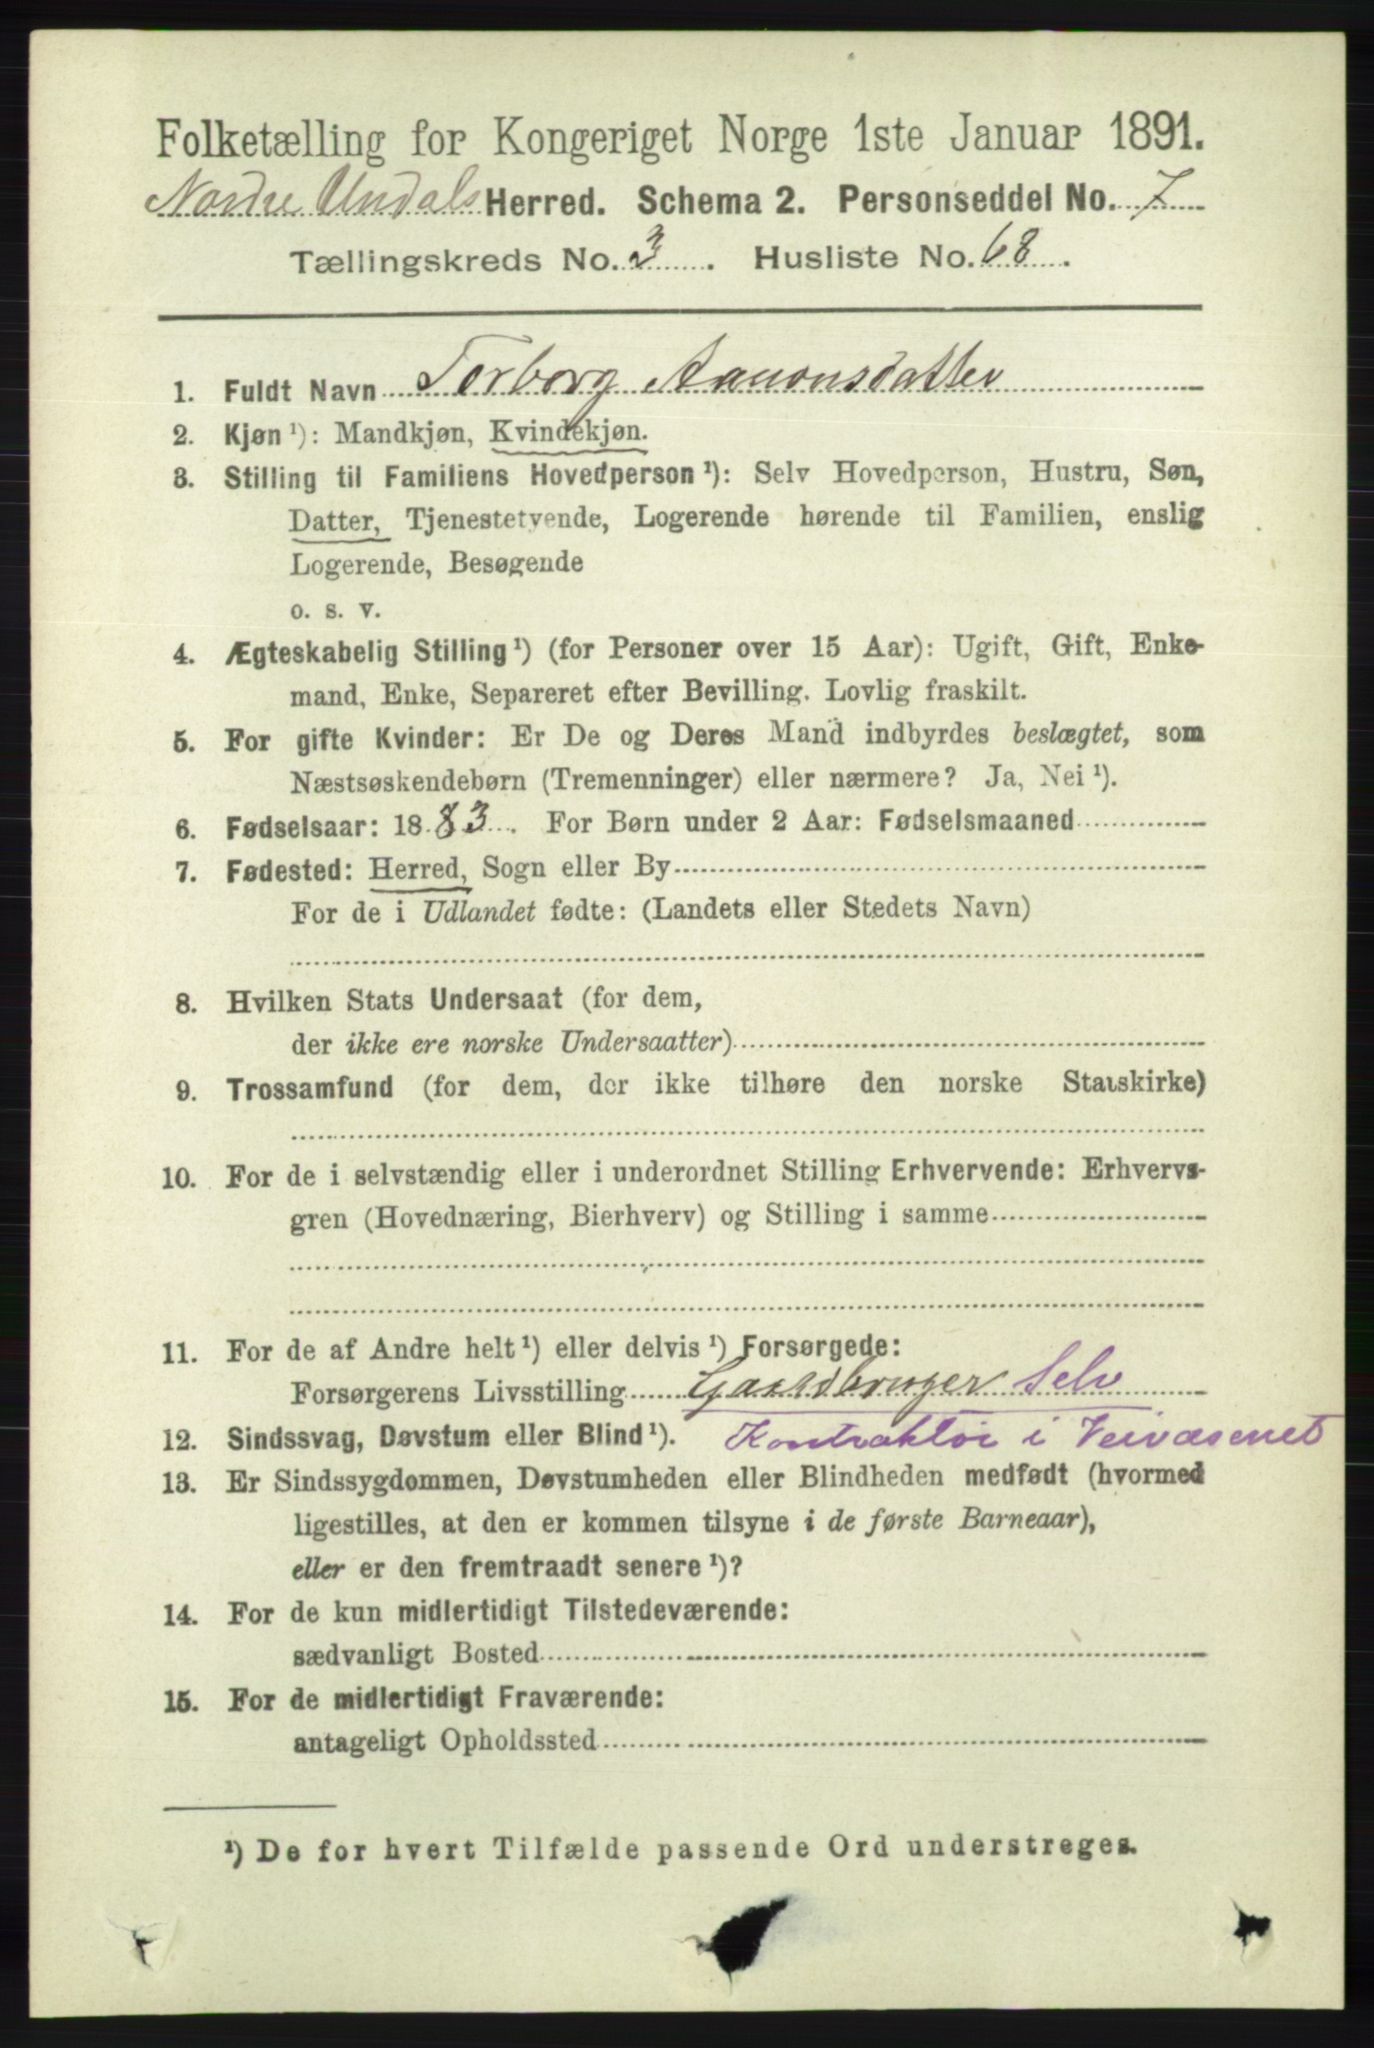 Folketælling for Kongeriget Norge 1ste Januar 1891.
Nordre Undals Herred. Schema 2. Personseddel No. 7
Tællingskreds No. 3. Husliste No. 68.
1. Fuldt Navn Torborg Aanonsdatter
2. Kjøn ¹): Mandkjøn, Kvindekjøn.
3. Stilling til Familiens Hovedperson ¹): Selv Hovedperson, Hustru, Søn,
Datter, Tjenestetyende, Logerende hørende til Familien, enslig
Logerende, Besøgende
o. s. v.
4. Ægteskabelig Stilling ¹) (for Personer over 15 Aar): Ugift, Gift, Enke-
mand, Enke, Separeret efter Bevilling. Lovlig fraskilt.
5. For gifte Kvinder: Er De og Deres Mand indbyrdes beslægtet, som
Næstsøskendebørn (Tremenninger) eller nærmere? Ja, Nei ¹).
6. Fødselsaar: 1883. For Børn under 2 Aar: Fødselsmaaned
7. Fødested: Herred, Sogn eller By
For de i Udlandet fødte: (Landets eller Stedets Navn)
8. Hvilken Stats Undersaat (for dem,
der ikke ere norske Undersaatter)
9. Trossamfund (for dem, der ikke tilhøre den norske Statskirke)
10. For de i selvstændig eller i underordnet Stilling Erhvervende: Erhvervs-
gren (Hovednæring, Bierhverv) og Stilling i samme
11. For de af Andre helt ¹) eller delvis ¹) Forsørgede:
Forsørgerens Livsstilling Gaardbruger Selv
12. Sindssvag, Døvstum eller Blind ¹). Kontraktør i Veivæsenet
13. Er Sindssygdommen, Døvstumheden eller Blindheden medfødt (hvormed
ligestilles, at den er kommen tilsyne i de første Barneaar),
eller er den fremtraadt senere ¹)?
14. For de kun midlertidigt Tilstedeværende:
sædvanligt Bosted
15. For de midlertidigt Fraværende:
antageligt Opholdssted
¹) De for hvert Tilfælde passende Ord understreges.